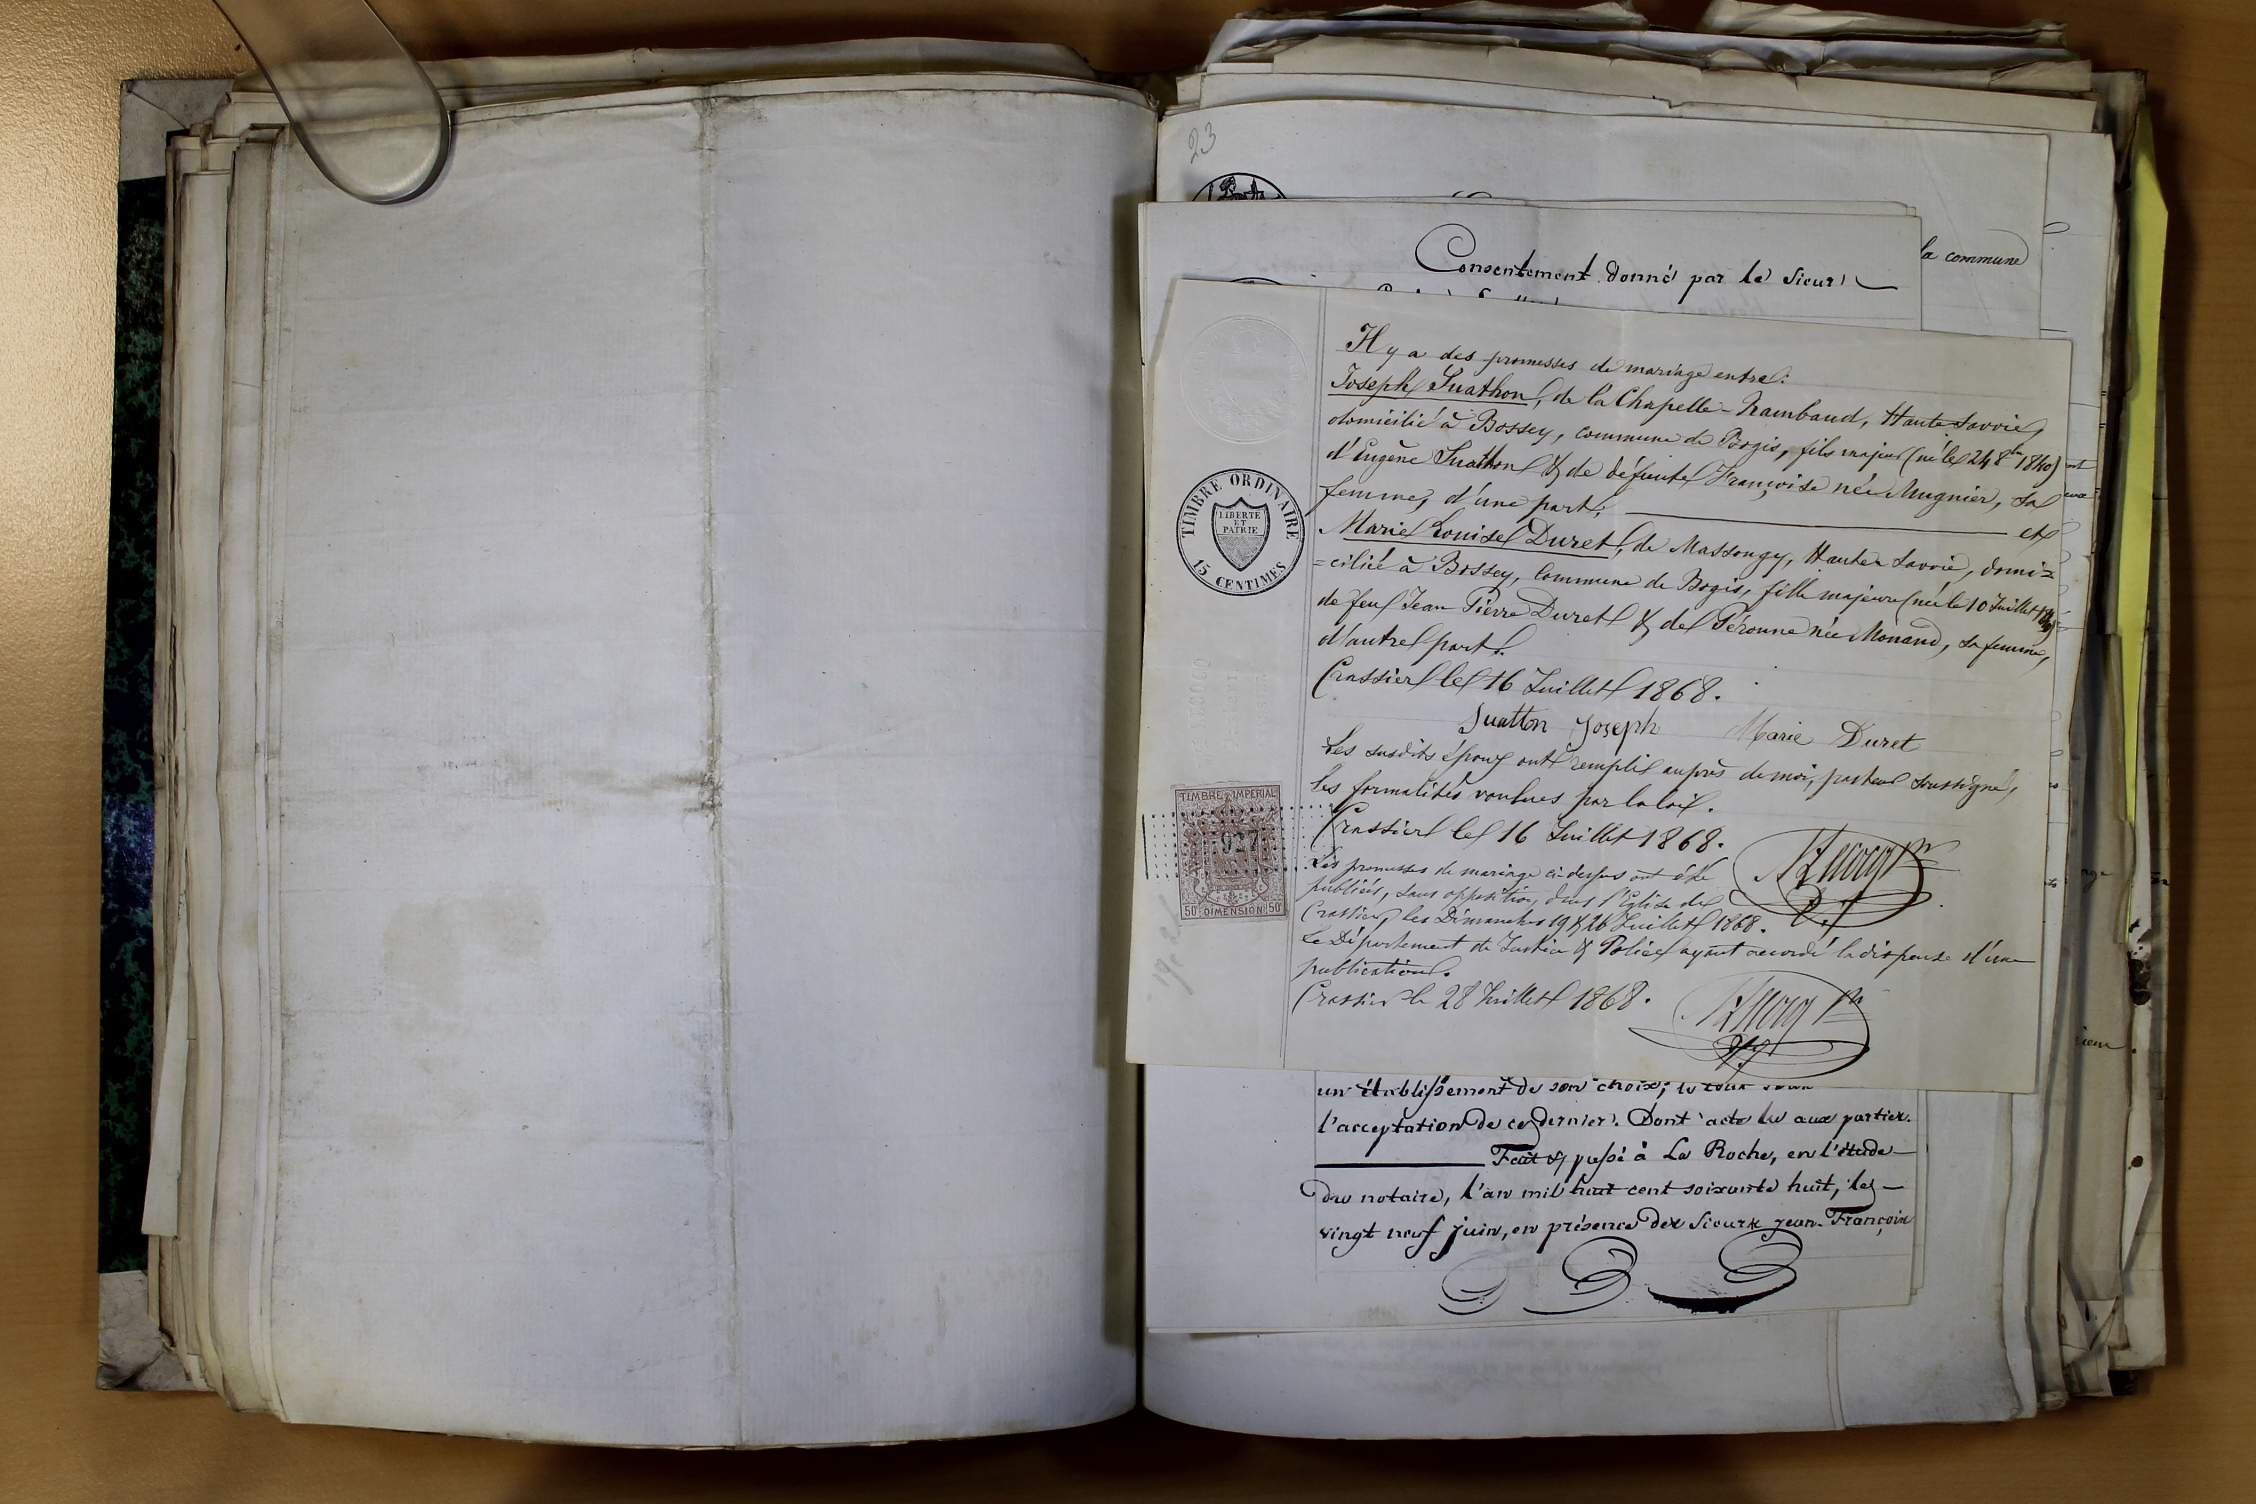 23
la commune
Consentement donné par le Sieur
Il y a des promesses de mariage entre:
Joseph Suathon, de la Chapelle-Rambaud, Haute Savoie,
domicilié à Bossey, commune de Bogis, fils majeur (né le 24 8bre 1840)
d'Eugène Suathon & de défunte Françoise née Mugnier, sa
femme, d'une part; et
Marie Louise Duret, de Massongy, Haute Savoie, domi=
=ciliée à Bossey, commune de Bogis, fille majeure (née le 10 Juillet
de feu Jean Pierre Duret & de Péronne née Monand, sa femme,
d'autre part.
Crassier le 16 Juillet 1868.
Suatton Joseph Marie Duret
Les susdits époux ont rempli auprès de moi, pasteur soussigné,
les formalités voulues par la loi.
Crassier le 16 Juillet 1868.
Les promesses de mariage ci-dessus ont été
publiées, sans opposition, dans l'Eglise de
Crassier, les Dimanches 19 & 26 Juillet 1868.
Le Département de Justice & Police ayant accordé la dispense d'une
publication.
Crassier le 28 Juillet 1868.
TIMBRE ORDINAIRE
LIBERTÉ
ET
PATRIE
15 CENTIMES
TIMBRE IMPERIAL
927
50c DIMENSION 50c
un établissement de son choix; le tout sous
l'acceptation de ce dernier. Dont acte lu aux parties.
Fait & passé à La Roche, en l'étude
du notaire, l'an mil huit cent soixante huit, le
vingt neuf juin, en présence des Sieurs Jean-François